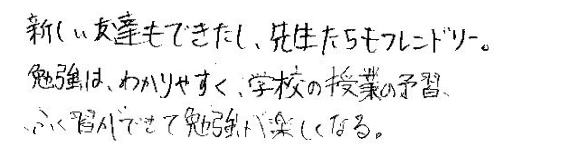 新しい友達もできたし、先生たちもフレンドリー。
勉強は、わかりやすく、学校の授業の予習、
ふく習ができて勉強が楽しくなる。